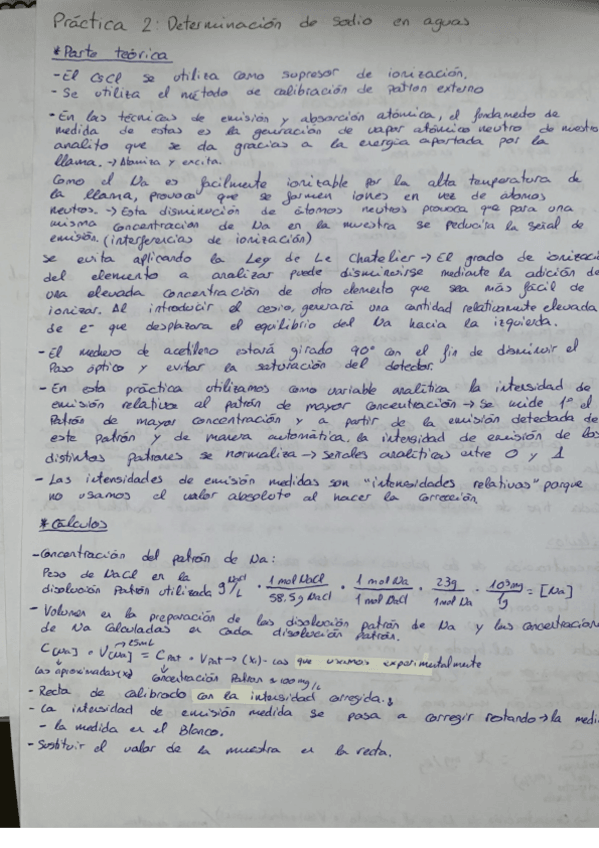 Práctica 2: Determinación de sodio en aguas
* Parte teórica
- El CsCl se utiliza como supresor de ionización.
- Se utiliza el método de calibración de patrón externo
- En las técnicas de emisión y absorción atómica, el fundameto de
medida de estas es la generación de vapor atómico neutro de nuestro
analito que se da gracias a la energía aportada por la
llama. → Atomiza y excita.
Como el Na es fácilmente ionizable por la alta temperatura de
la llama, provoca que se formen iones en vez de átomos
neutros. → Esta disminución de átomos neutros provoca que para una
misma concentración de Na en la muestra se reducirá la señal de
emisión. (interferencias de ionización)
se evita aplicando la Ley de Le Chatelier → El grado de ionizaci
del elemento a analizar puede disminuirse mediante la adición de
una elevada concentración de otro elemento que sea más fácil de
ionizar. Al introducir el cesio, generará una cantidad relativamente elevada
de e- que desplazara el equilibrio del Na hacia la izquierda.
- El mechero de acetileno estará girado 90° con el fin de disminuir el
Paso óptico y evitar la saturación del detector.
- En esta práctica utilizamos como variable analítica la intesidad de
emisión relativa al patrón de mayor concentración → Se mide 1º el
Patrón de mayor concentración y a partir de la emisión detectada de
este patrón y de manera automática, la intesidad de emisión de los
distintos patrones se normaliza → señales analíticas entre 0 y 1
- Las intesidades de emisión medidas son "intesidades relativas" porque
no usamos el valor absoluto al hacer la corrección.
* Cálculos
- Concentración del patrón de Na:
Peso de NaCl en la
disolución Patrón utilizada g NaCl/L · 1 mol NaCl/58,5g NaCl · 1 mol Na/1 mol NaCl · 23g/1 mol Na · 10³mg/1g = [Na]
- Volumen en la preparación de las disolución patrón de Na y las concentracione
de Na calculadas en cada disolución Patrón.
C[Na] · V[Na] → 25mL = CPat · VPat → (x) - las que usamos experimentalmente
las aproximadas (x) Concentración Patrón ≈ 100 mg/L
- Recta de calibrado con la intensidad corregida.
- La intesidad de emisión medida se pasa a corregir restando → la medi
- la medida en el Blanco.
- Sustituir el valor de la muestra en la recta.